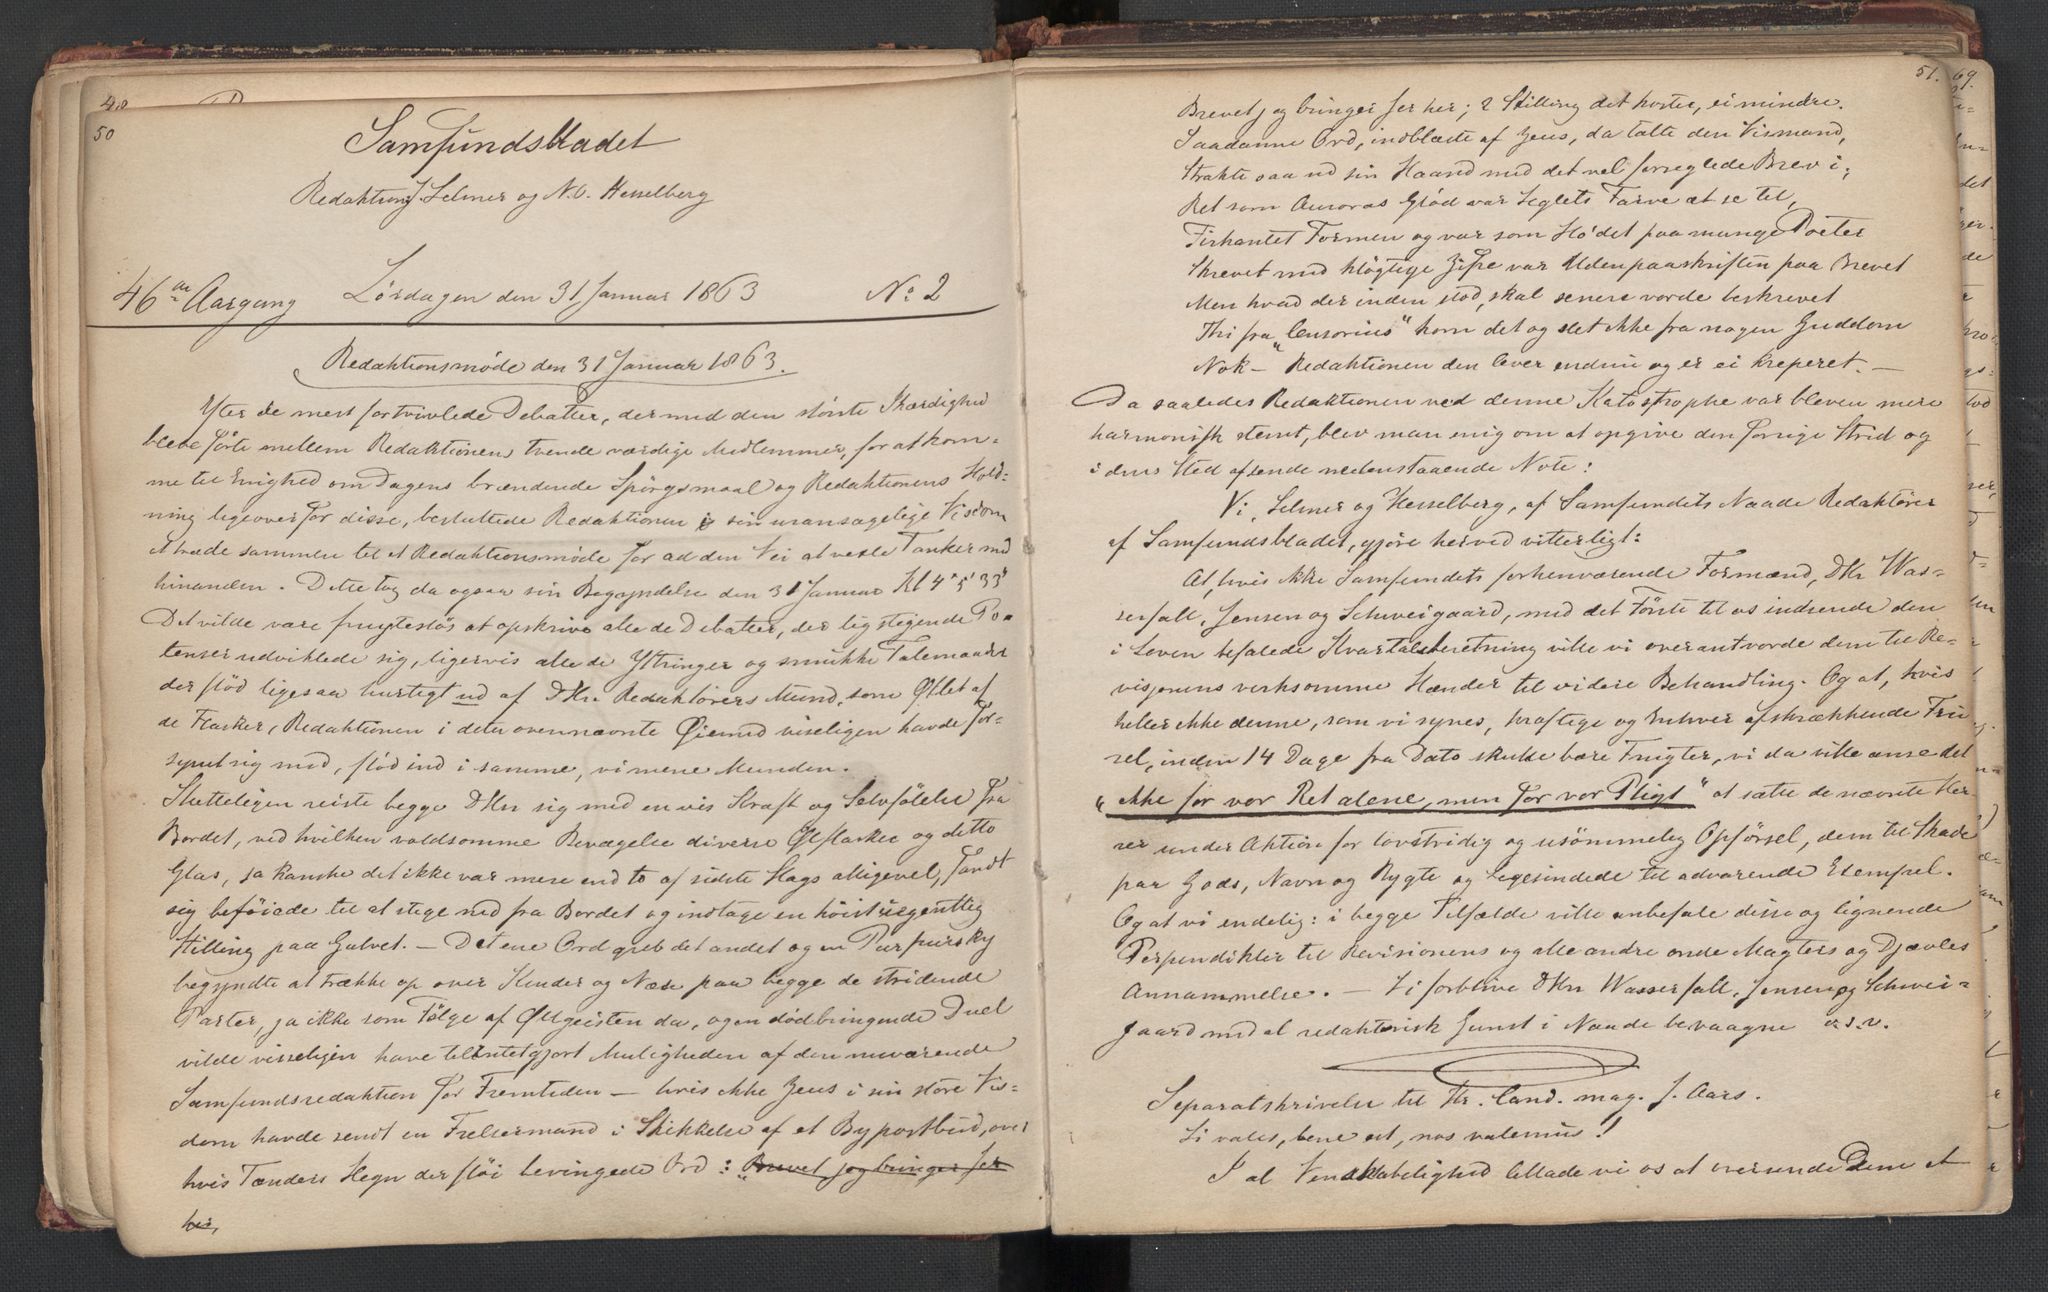 50
Samfundsbladet
Redaktion J. Selmer og N. C. Hesselberg
46de Aargang Lørdagen den 31 Januar 1863 No 2
Redaktionsmøde den 31 Januar 1863.
Efter de mest fortvivlede Debatter, der med den største Ihærdighed
bleve førte mellem Redaktionens tvende værdige Medlemmer, for at kom-
me til Enighed om Dagens brændende Spørgsmaal og Redaktionens Hold-
ning ligeoverfor disse, besluttede Redaktionen i sin uransagelige Visdom
at træde sammen til et Redaktionsmøde for ad den Vei at vexle Tanker med
hinanden. - Dette tog da ogsaa sin Begyndelse den 31 Januar Kl 4° 5' 33"
Det vilde være frugtesløs at opskrive alle de Debatter, der lig stigende Po-
tenser udviklede sig, ligervis alle de Yttringer og smukke Talemaader
der flød ligesaa hurtigt ud af DHrr. Redaktørers Mund, som Øllet af
de Flasker, Redaktionen i det ovennævnte Øiemed viseligen havde for-
synet sig med, flød ind i samme, vi mene Munden.
Slutteligen reiste begge DHrr sig med en vis Kraft og Selvfølelse fra
Bordet, ved hvilken voldsomme Bevægelse diverse Ølflasker og ditto
Glas, ja kanske det ikke var mere end to af sidste Slags alligevel, fandt
sig beføiede til at stige ned fra Bordet og indtage en høist uegentlig
Stilling paa Gulvet. - Det ene Ord greb det andet og en Purpursky
begyndte at trække op over Kinder og Næse paa begge de stridende
Parter, ja ikke som Følge af Ølgeisten da, og en dødbringende Duel
vilde visseligen have tilintetgjort Muligheden af den nuværende
Samfundsredaktion for Fremtiden - hvis ikke Zeus i sin store Vis-
dom havde sendt en Frelsermand i Skikkelse af et Bypostbud, over
hvis Tænders Hegn der fløi bevingede Ord: "Brevet jeg bringer Jer
her,
51.
69.
Brevet jeg bringer Jer her; 2 Skilling det koster, ei mindre.
Saadanne Ord, indblæste af Zeus, da talte den Vismand,
Strakte saa ud sin Haand med det vel forseglede Brev i;
Ret som Auroras Glød var Seglets Farve at se til,
Firkantet Formen og var som Hodet paa mange Poeter
Skrevet med kløgtige Zifre var Udenpaaskriften paa Brevet
Men hvad der inden stod, skal senere vorde beskrevet
Thi fra "Censorius" kom det og slet ikke fra nogen Guddom
Nok - Redaktionen den lever endnu og er ei kreperet. -
Da saaledes Redaktionen ved denne Katastrophe var bleven mere
harmonisk stemt, blev man enig om at opgive den forrige Strid og
i dens Sted afsende nedenstaaende Note:
Vi, Selmer og Hesselberg, af Samfundets Naade Redaktører
af Samfundsbladet, gjøre herved vitterligt:
At, hvis ikke Samfundets forhenværende Formænd, DHrr Was-
serfall, Jensen og Schweigaard, med det Første til os indsende den
i Loven befalede Kvartalsberetning ville vi overantvorde dem til Re-
visjonens virksomme Hænder til videre Behandling. Og at, hvis
heller ikke denne, som vi synes, kraftige og Enhver afskrækkende Tru
sel, inden 14 Dage fra Dato skulde bære Frugter, vi da ville anse det
"ikke for vor Ret alene, men for vor Pligt" at sætte de nævnte Her-
rer under Aktion for lovstridig og usømmelig Opførsel, dem til Skade
paa Gods, Navn og Rygte og Ligesindede til advarende Exempel.
Og at vi endelig: i begge Tilfælde ville anbefale disse og lignende
Perpendikler til Revisionens og alle andre onde Magters og Djævles
Annammelse. - Vi forblive DHrr Wasserfall, Jensen og Schwei-
gaard med al redaktorisk Gunst i Naade bevaagne o.s.v.
Separatskrivelse til Hr. Cand. mag. J. Aars.
Si vales, bene est, nos valemus!
I al Venskabelighed tillade vi os at oversende Dem et